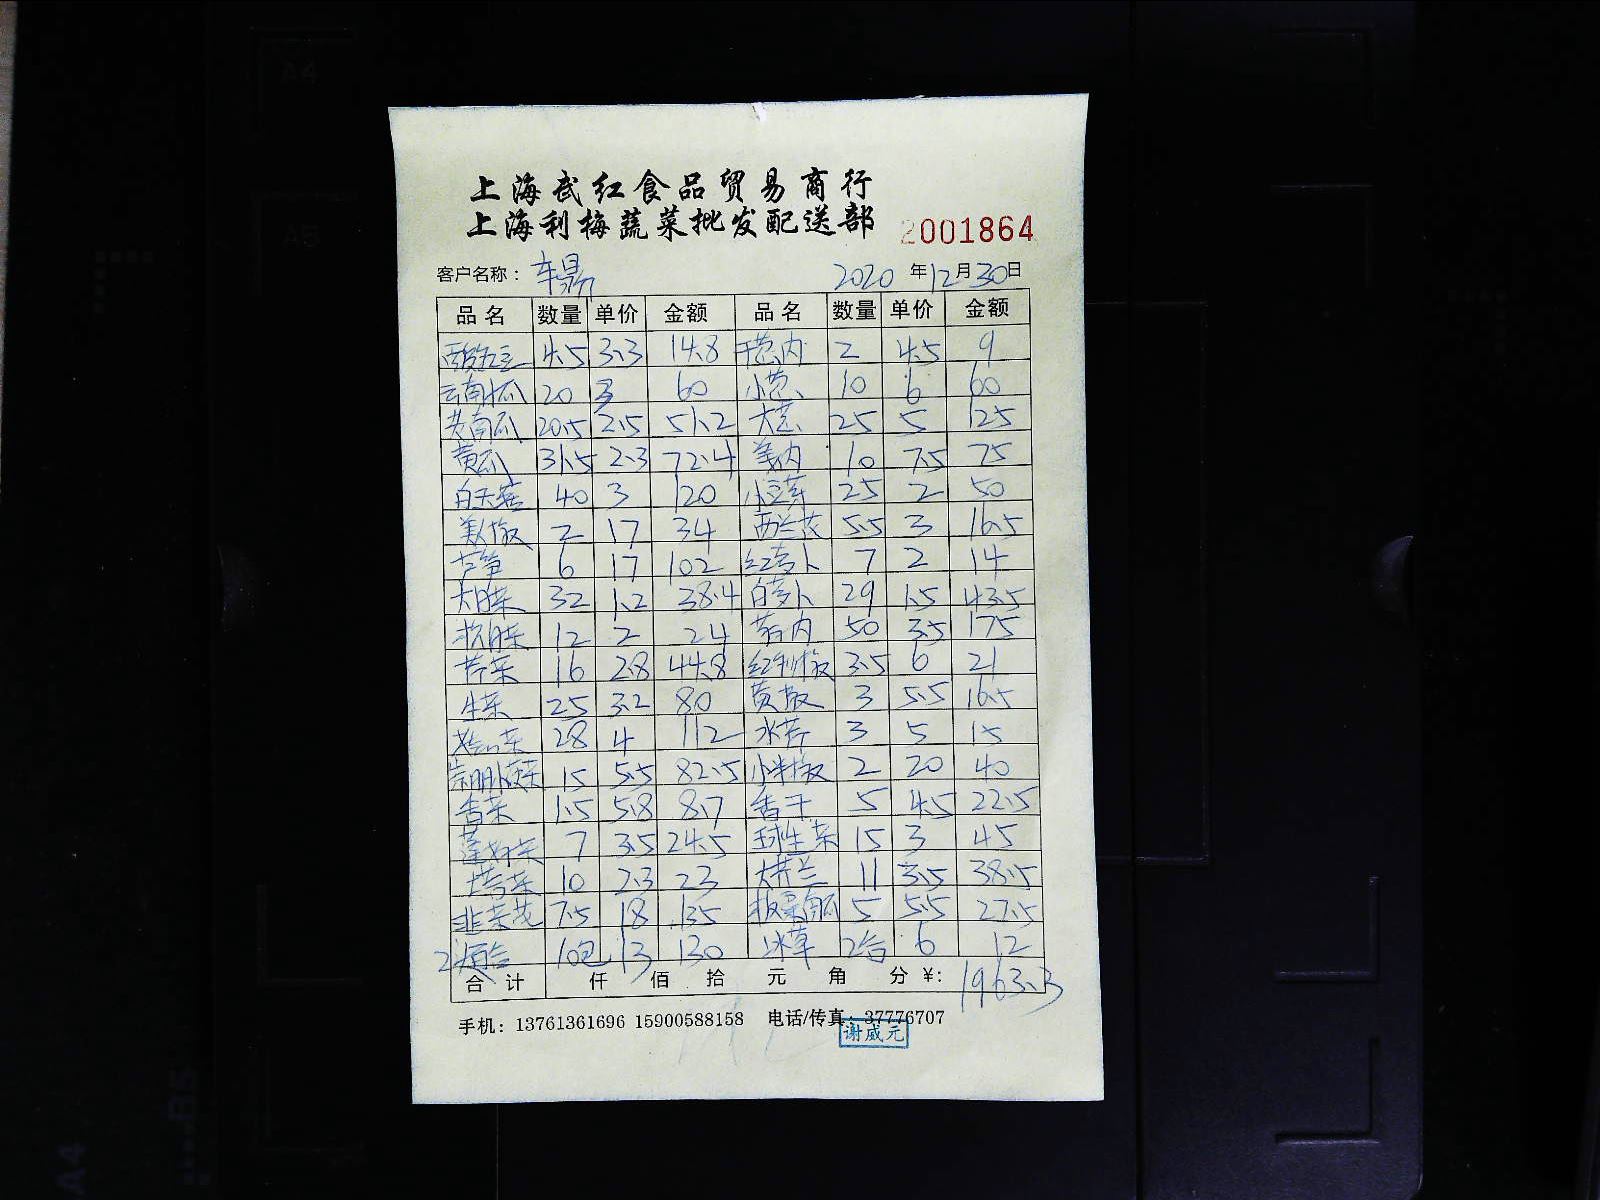 上海武红食品贸易商行
上海利梅蔬菜批发配送部 2001864
客户名称： 2020 年 12 月 30 日
品名 数量 单价 金额 品名 数量 单价 金额
4.5 3.3 14.8 2 4.5 9
20 3 60 小葱 10 6 60
20.5 2.5 51.2 大葱 25 5 125
黄瓜 31.5 2.3 72.4 10 7.5 75
40 3 120 小豆芽 25 2 50
美人椒 2 17 34 西兰花 5.5 3 16.5
芦笋 6 17 102 红萝卜 7 2 14
大白菜 32 1.2 38.4 白萝卜 29 1.5 43.5
12 2 24 50 3.5 175
芹菜 16 2.8 44.8 3.5 6 21
生菜 25 3.2 80 黄椒 3 5.5 16.5
28 4 112 水芹 3 5 15
15 5.5 82.5 小米椒 2 20 40
香菜 1.5 5.8 8.7 香干 5 4.5 22.5
7 3.5 24.5 球生菜 15 3 45
10 2.3 23 大芥兰 11 3.5 38.5
韭菜花 7.5 18 135 5 5.5 27.5
10包 13 130 冰草 2合 6 12
合计 仟 佰 拾 元 角 分 ¥: 1963.3
手机：13761361696 15900588158 电话/传真：37776707
谢威元
A4
A5
A4